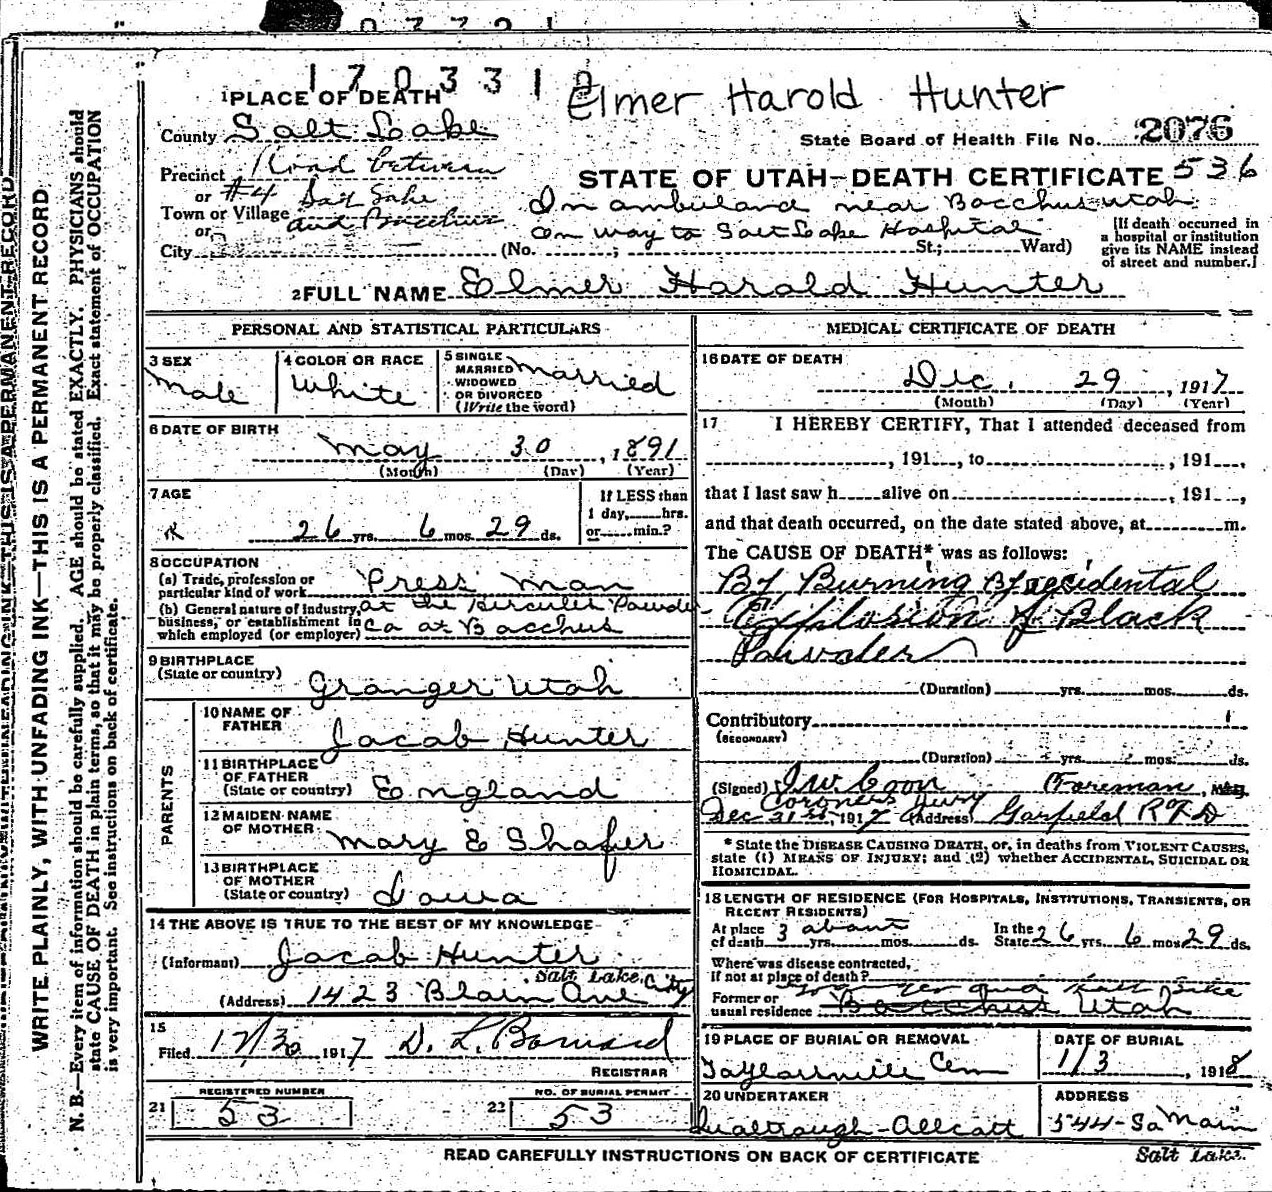 1703310
Elmer Harold Hunter
1 PLACE OF DEATH
County Salt Lake
State Board of Health File No. 2076
Precinct Road between
or #4 Salt Lake
Town or Village and Bacchus
or
City
STATE OF UTAH—DEATH CERTIFICATE 536
In ambulance near Bacchus Utah
on way to Salt Lake Hospital
(No. ; St.; Ward)
[If death occurred in
a hospital or institution
give its NAME instead
of street and number.]
2 FULL NAME Elmer Harold Hunter
PERSONAL AND STATISTICAL PARTICULARS
3 SEX
Male
4 COLOR OR RACE
White
5 SINGLE
MARRIED
WIDOWED
OR DIVORCED
(Write the word)
Married
6 DATE OF BIRTH
May 30, 1891
(Month) (Day) (Year)
7 AGE
26 yrs. 6 mos. 29 ds.
If LESS than
1 day, hrs.
or min.?
8 OCCUPATION
(a) Trade, profession or
particular kind of work Press Man
(b) General nature of Industry,
business, or establishment in
which employed (or employer)
at the Hercules Powder
Co at Bacchus
9 BIRTHPLACE
(State or country)
Granger Utah
PARENTS
10 NAME OF
FATHER
Jacab Hunter
11 BIRTHPLACE
OF FATHER
(State or country)
England
12 MAIDEN NAME
OF MOTHER
Mary E Shafer
13 BIRTHPLACE
OF MOTHER
(State or country)
Iowa
14 THE ABOVE IS TRUE TO THE BEST OF MY KNOWLEDGE
(Informant) Jacab Hunter
Salt Lake City
(Address) 1423 Blain Ave
15
Filed 12/30 1917 D. L. Barnard
REGISTRAR
21 REGISTERED NUMBER
53
22 NO. OF BURIAL PERMIT
53
MEDICAL CERTIFICATE OF DEATH
16 DATE OF DEATH
Dec. 29, 1917
(Month) (Day) (Year)
17 I HEREBY CERTIFY, That I attended deceased from
, 191 , to , 191 ,
that I last saw h alive on , 191 ,
and that death occurred, on the date stated above, at m.
The CAUSE OF DEATH* was as follows:
By Burning By accidental
Explosion of Black
Powder
(Duration) yrs. mos. ds.
Contributory
(SECONDARY)
(Duration) yrs. mos. ds.
(Signed) J.W. Coon Foreman, M.D.
Coroners Jury
Dec 31st, 1917 (Address) Garfield RFD
* State the DISEASE CAUSING DEATH, or, in deaths from VIOLENT CAUSES,
state (1) MEANS OF INJURY; and (2) whether ACCIDENTAL, SUICIDAL OR
HOMICIDAL.
18 LENGTH OF RESIDENCE (FOR HOSPITALS, INSTITUTIONS, TRANSIENTS, OR
RECENT RESIDENTS)
At place
of death 3 about yrs. mos. ds.
In the
State 26 yrs. 6 mos 29 ds.
Where was disease contracted,
if not at place of death?
Former or
usual residence Bacchus Utah
19 PLACE OF BURIAL OR REMOVAL
Taylorsville Cem
DATE OF BURIAL
1/3, 1918
20 UNDERTAKER
ADDRESS
544-So Main
Salt Lake
READ CAREFULLY INSTRUCTIONS ON BACK OF CERTIFICATE
WRITE PLAINLY, WITH UNFADING INK—THIS IS A PERMANENT RECORD
N. B.—Every item of information should be carefully supplied. AGE should be stated EXACTLY. PHYSICIANS should
state CAUSE OF DEATH in plain terms, so that it may be properly classified. Exact statement of OCCUPATION
is very important. See instructions on back of certificate.